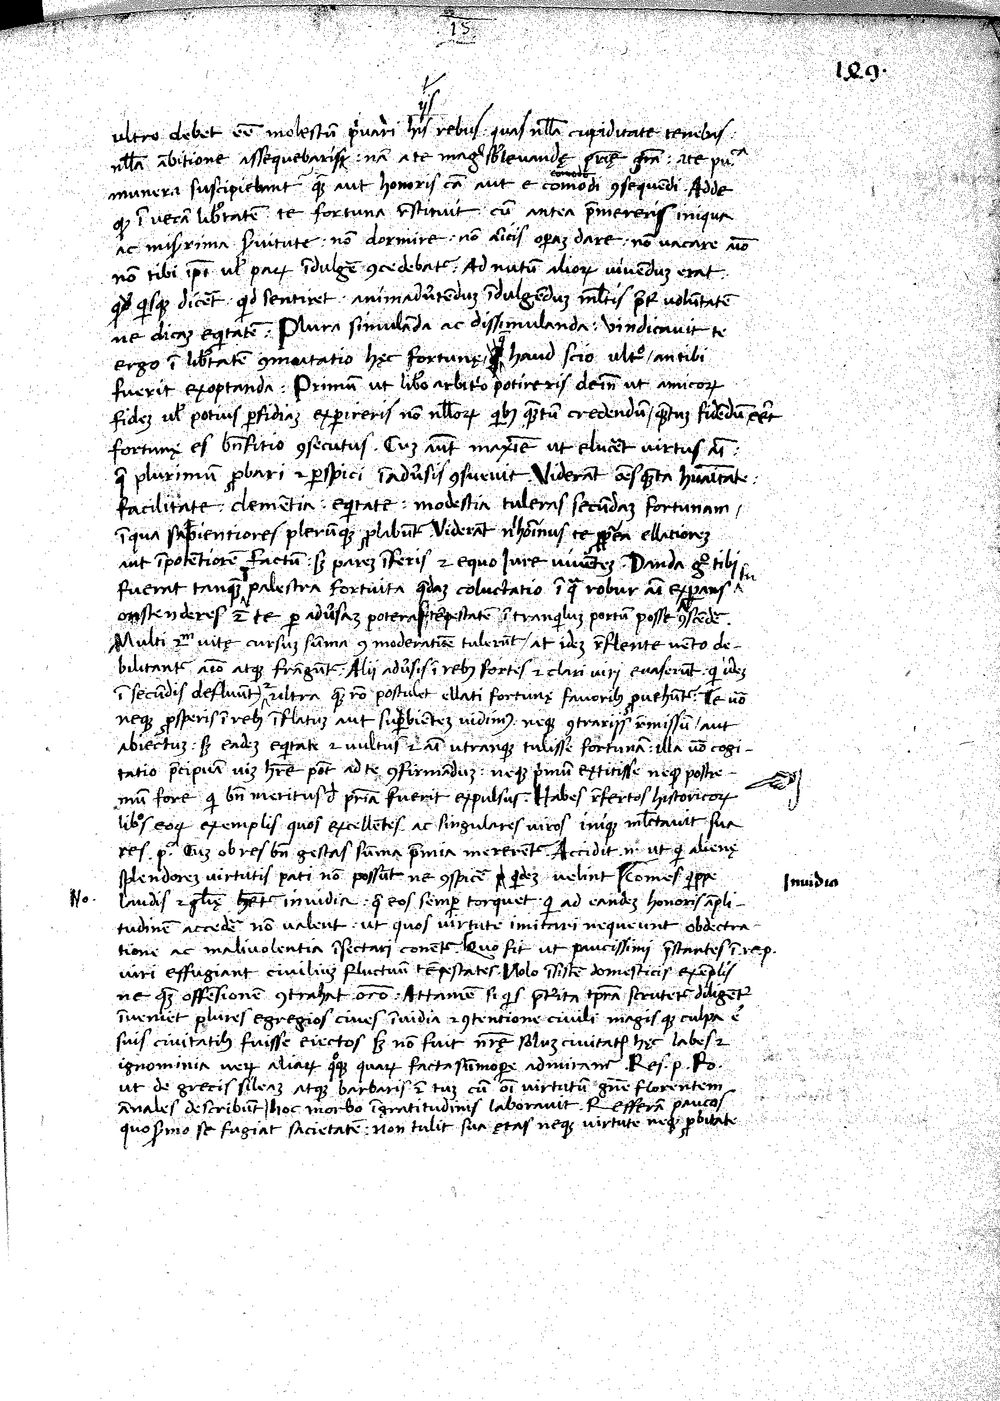 15
129.
ijs
ultro debet eẽ molestũ p̃uari hijs rebus quas nłła cupiditate tenebaris :
nłła ãbitione assequebaris : nã a te
munera suscipiebant᷑ q̃ aut honoris cã aut e cõmodi ꝯsequẽdi . Adde
ĩ uerã lib̾tatẽ te fortuna r̃stituit . cũ antea p̃mereris iniqua
ac mis̾rima s̾uitute : nõ dormire : nõ aĩcis op̾aȝ dare : nõ uacare aĩo
nõ tibi ip̃i ul̾ paꝝ ĩdulgẽ ꝯcedebat᷑ : Ad nutũ alioꝝ uiuẽduȝ erat .
qd̾ quisqȝ dicẽt qd sentiret . animadu̾tẽduȝ ĩdulgẽduȝ ml̾tis p̃t̾ uolũtatẽ
ne dicaȝ eq̃tatẽ : Plura simulãda ac dissimulanda : Vindicauit te
ergo ĩ lib̾tatẽ ꝯmutatio hęc fortunę haud scio ult̾ / an tibi
fuerit exoptanda : Primũ ut lib̾o arbit̾o potireris deĩn ut amicoꝝ
fideȝ ul̾ potius ꝑfidiaȝ expireris nõ nłłoꝝ qibȝ q̃tũ credendũ / q̃tuȝ fidẽdũ eẽt
fortunę es bñfitio ꝯsecutus . Cuȝ aũt maxĩe ut elucẽt uirtus aĩ :
q̃ plurimũ ꝓbari ⁊ ꝑspici ĩ adu̾sis ꝯsueuit . Viderãt oẽs q̃ta huãitate :
facilitate : clemẽtia : eq̃tate : modestia tuleras secũdaȝ fortunam /
ĩ qua sapientiores plerũqȝ ꝓlabũt᷑ . Viderãt n̾ hoĩnus te ꝓp̃ea ellatioreȝ
aut ĩpotẽtiorẽ factũ : sȝ pareȝ ĩferis ⁊ equo Jure uiuẽteȝ . Danda g̊ tibi
fuerat tanq̃ȝ palestra fortuita q̃daȝ coluctatio ĩ q̃ robur aĩ
ostenderes te ꝑ adu̾saȝ tẽpestatẽ ĩ tranqiluȝ portũ posse ꝯscẽdẽ .
Multi uitę cursuȝ sũma ꝯ moderatiõe tulerũt / at ideȝ r̃flente uẽto de-
bilitant᷑ aĩo atqȝ frãgunt᷑ . Alii adu̾sis ĩ rebȝ fortes ⁊ clari uiri euaserũt . qi ideȝ
ĩ secũdis defluũt ultra q̃ȝ rõ postulet ellati fortunę fauoribȝ ꝓuehũt᷑ . Te uõ
neqȝ ꝓsperis ĩ rebȝ ĩflatuȝ aut sup̾biẽteȝ uidimȝ . neqȝ ꝯtrariis r̃missũ / aut
abiectuȝ : sȝ eadeȝ eq̃tate ⁊ uultus ⁊ aĩ utranqȝ tulisse fortunã : illa uõ cogi-
tatio p̃cipuã uiȝ hr̃e põt ad te ꝯfirmãduȝ : neqȝ p̃mũ extitisse neqȝ postre-
mũ fore qi bñ meritus d̾ pr̃ia fuerit expulsus . Habes r̃fertos historicoꝝ
lib̾os eoꝝ exemplis quos excellẽtes ac singulares uiros iniqe ml̾ctauit sua
res . p̃. Cuȝ ob res bñ gestas sũma p̃mia mererẽt᷑ . Accidit n̾ ut qi alienę
splendoreȝ uirtutis pati nõ possũt ne ꝯspicẽ qideȝ uelint Comes qippe
laudis ⁊ gl̾ię hẽt᷑ inuidia : q̃ eos semp̾ torquet . qi ad eandeȝ honoris ãpli-
tudinẽ accedẽ nõ ualent . ut quos uirtute imitari nequeunt obdectra-
tione ac maliuolentia ĩsectari conẽt᷑ Quo fit ut paucissimi p̃stantes ĩ . re . p .
uiri effugiant ciuiliuȝ fluctuũ tẽpestates . Nolo ĩsistẽ domesticis exẽplis
ne q̃ȝ offẽsionẽ ꝯtrahat orõ : Attamẽ si qis p̃t̾ita tp̃ra scrutet᷑ diligẽt̾
ĩueniet plures egregios ciues ĩuidia ⁊ ꝯtentione ciuili magis q̃ȝ culpa
suis ciuitatibȝ fuisse eiectos sȝ nõ fuit nr̃ę soluȝ ciuitatȝ hęc labes ⁊
ignominia ueꝝ aliaꝝ qoqȝ quaꝝ facta sũmope admirant᷑ . Res . p . Ro .
ut de grecis sileaȝ atqȝ barbaris ⁊ tuȝ cũ oĩ uirtutũ gñe florentem
ãnales describũt / hoc morbo ĩgratitudinis laborauit . Refferã paucos
quo s̾mo se fugiat sacietatẽ : non tulit sua ętas neqȝ uirtute neqȝ ꝓbitate
Inuidia
No .